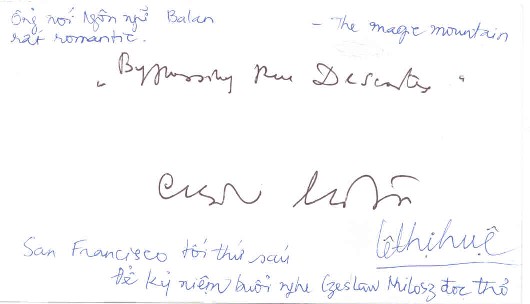 Ông nói Ngôn ngữ Balan
rất romantic.
- The magic mountain
"Bypassing Rue Descartes"
lêthịhuệ
San Francisco tối thứ sáu
Để kỷ niệm buổi nghe Czeslaw Milosz đọc thơ